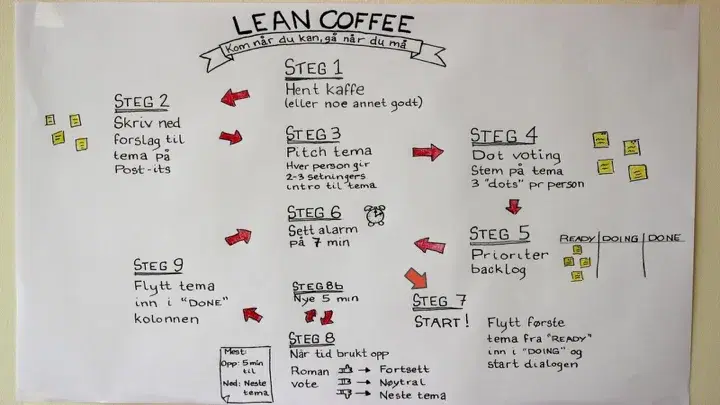 LEAN COFFEE
Kom når du kan, gå når du må
STEG 1
Hent kaffe
(eller noe annet godt)
STEG 2
Skriv ned
forslag til
tema på
Post-its
STEG 3
Pitch tema
Hver person gir
2-3 setningers
intro til tema
STEG 4
Dot voting
Stem på tema
3 "dots" pr person
STEG 5
Prioriter
backlog
READY DOING DONE
STEG 6
Sett alarm
på 7 min
STEG 7
START!
Flytt første
tema fra "READY"
inn i "DOING" og
start dialogen
STEG 8
Når tid brukt opp
Roman
vote
Fortsett
Nøytral
Neste tema
STEG 8b
Nye 5 min
Mest:
Opp: 5 min
til
Ned: Neste
tema
STEG 9
Flytt tema
inn i "DONE"
kolonnen